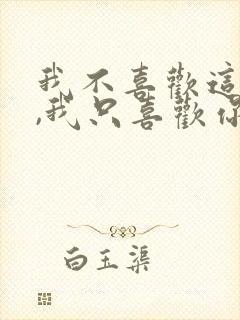 我不喜歡這
,我只喜歡你
白玉渠